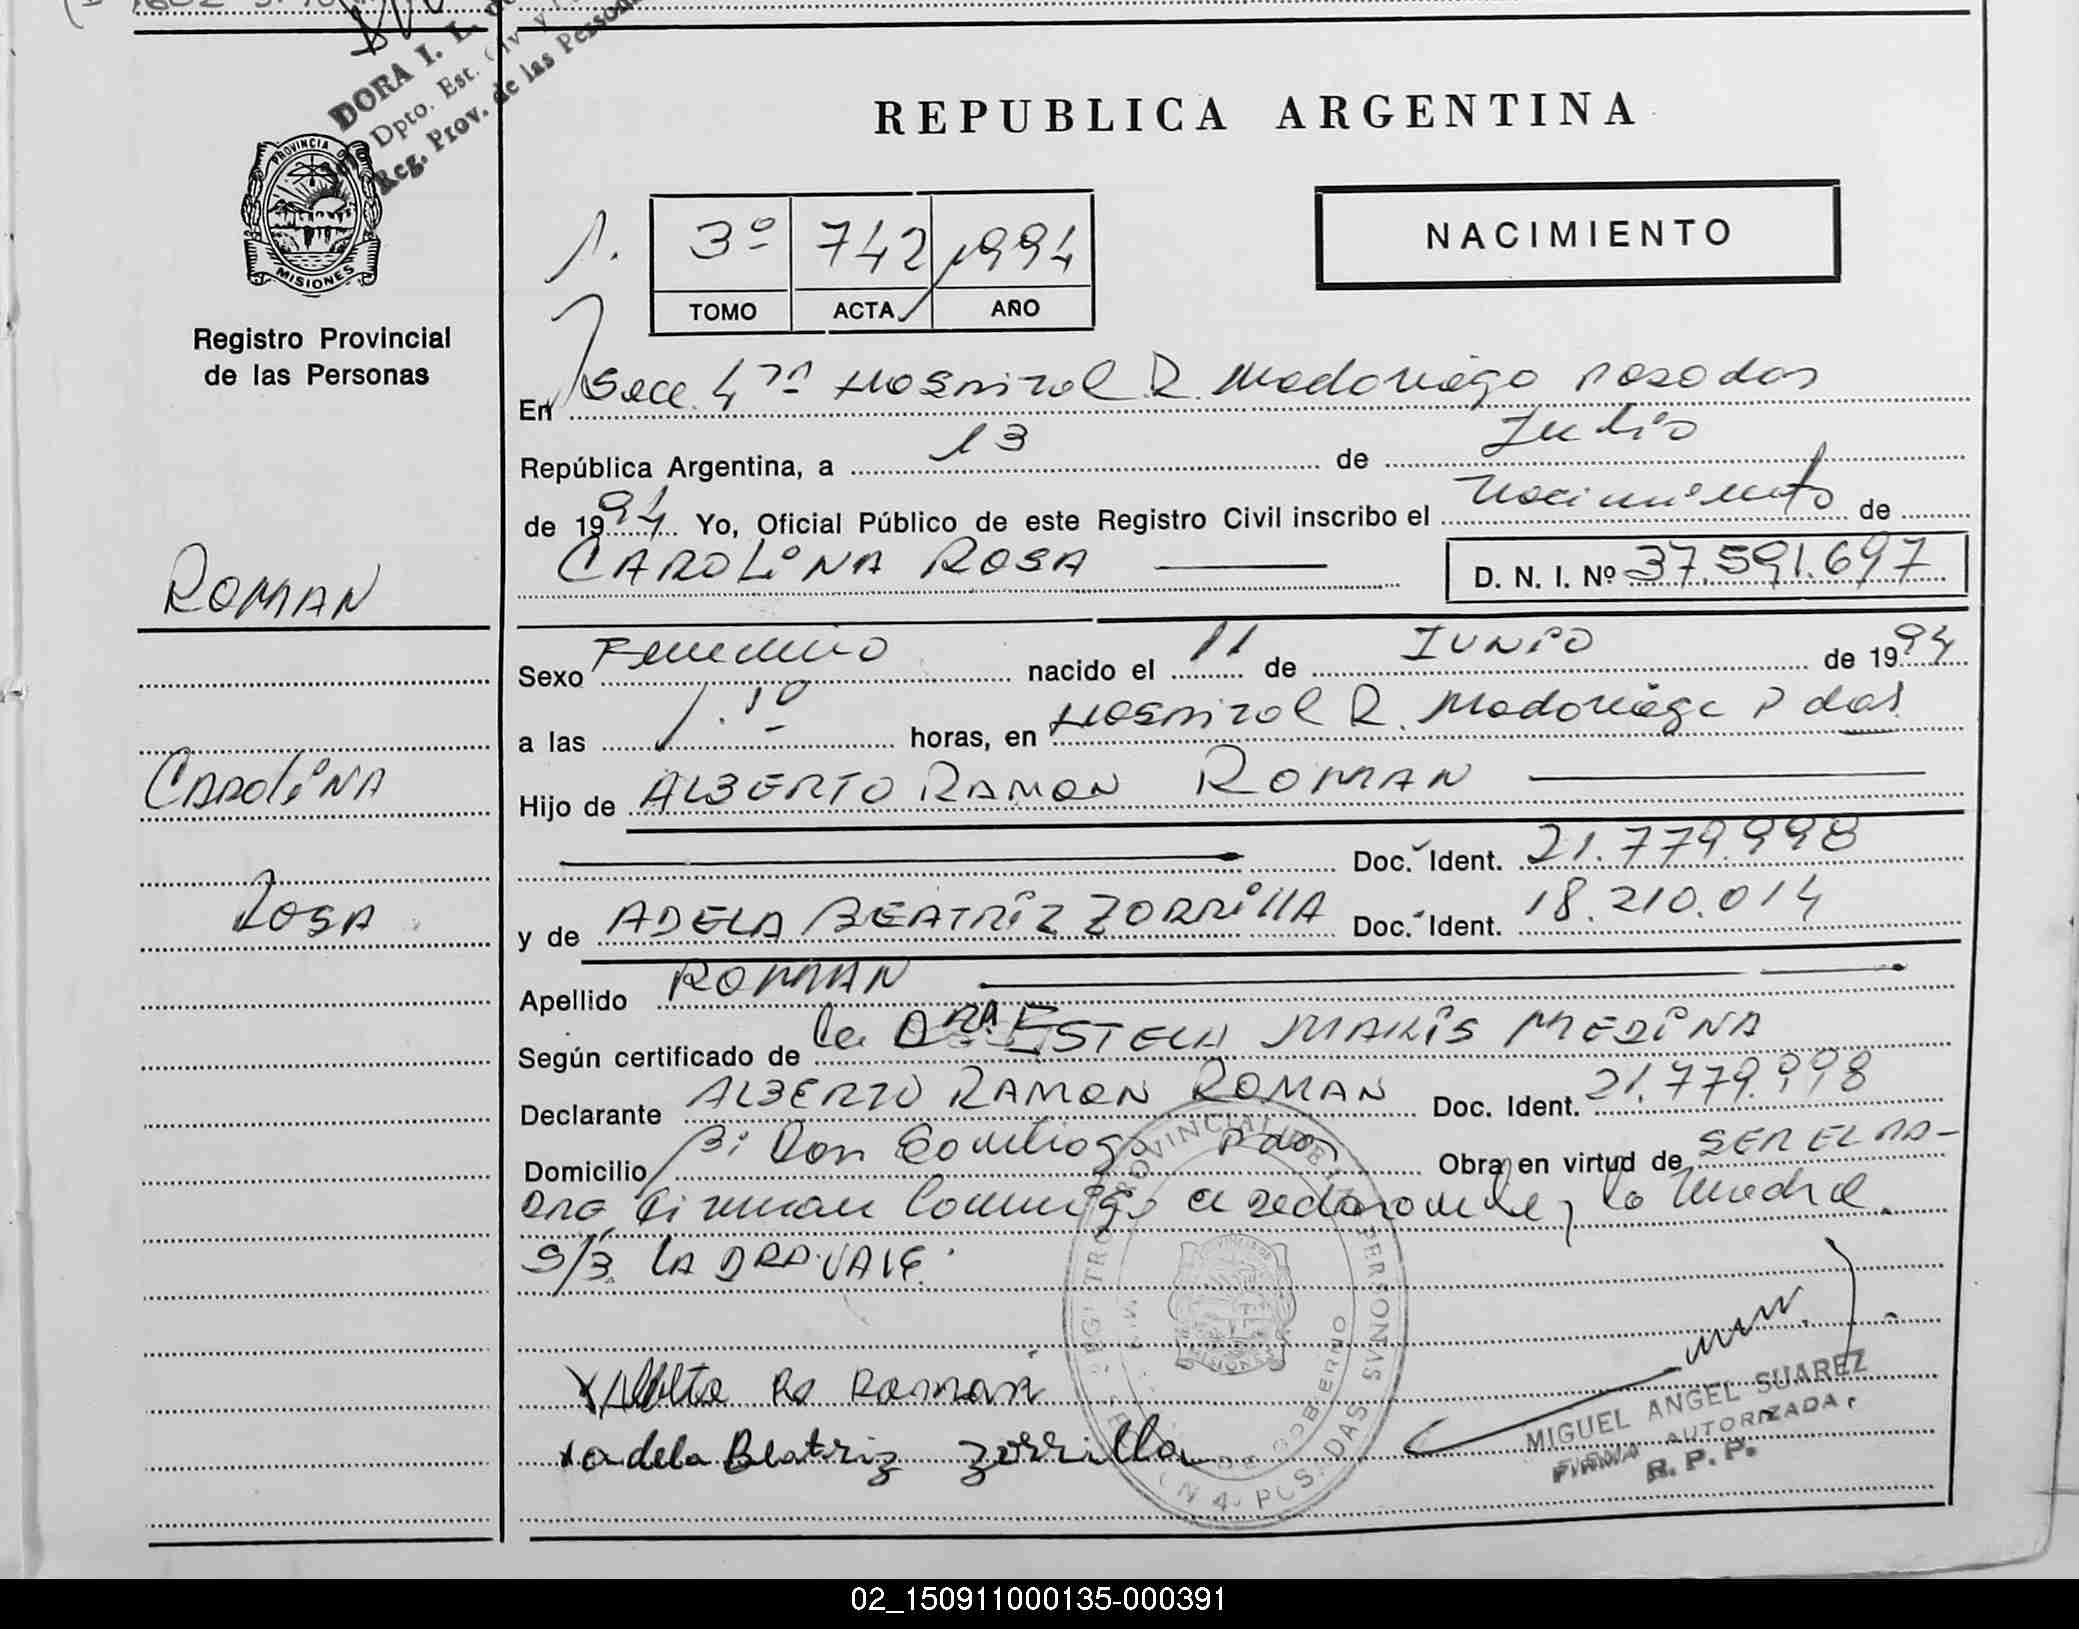 DORA I. L.
Dpto. Est. Civ. y
Reg. Prov. de las Personas
PROVINCIA DE
MISIONES
Registro Provincial
de las Personas
REPUBLICA ARGENTINA
1. 3º 742 1994
TOMO ACTA AÑO
NACIMIENTO
En Secc. 4ta Hospital R. Madariaga Posadas
República Argentina, a 13 de Julio
de 1994 Yo, Oficial Público de este Registro Civil inscribo el nacimiento de
CAROLINA ROSA D. N. I. Nº 37.591.697
ROMAN
Sexo Femenino nacido el 11 de JUNIO de 1994
a las 1.10 horas, en Hospital R. Madariaga Pdas.
CAROLINA
Hijo de ALBERTO RAMON ROMAN
Doc. Ident. 21.779.998
ROSA
y de ADELA BEATRIZ ZORRILLA Doc. Ident. 18.210.014
Apellido ROMAN
Según certificado de la DRA. ESTELA MARIS MEDINA
Declarante ALBERTO RAMON ROMAN Doc. Ident. 21.779.998
Domicilio Bº Don Santiago Pdas Obra en virtud de SER EL PA-
DRE, firman conmigo el declarante y la madre.
S/B. LA DRA. VALE.
Alberto Ra Roman
Adela Beatriz Zorrilla
REGISTRO PROVINCIAL DE LAS PERSONAS
PROVINCIA DE
MISIONES
DE GOBIERNO
N 4 - POSADAS
MIGUEL ANGEL SUAREZ
FIRMA AUTORIZADA
R. P. P.
02_150911000135-000391